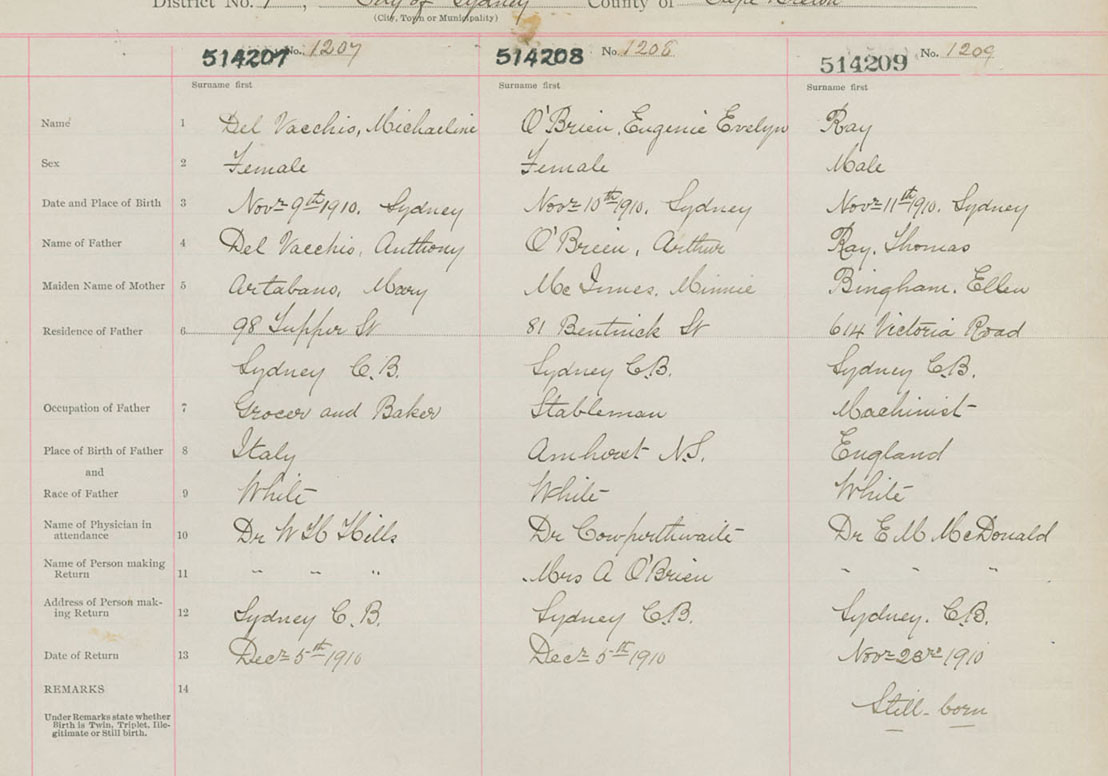 District No. 7, City of Sydney County of Cape Breton
(City, Town or Municipality)
514207 No. 1207 514208 No. 1208 514209 No. 1209
Surname first Surname first Surname first
Name 1 Del Vacchio, Michaeline O'Brien, Eugenie Evelyn Ray
Sex 2 Female Female Male
Date and Place of Birth 3 Novr 9th 1910. Sydney Novr 10th 1910. Sydney Novr 11th 1910. Sydney
Name of Father 4 Del Vacchio, Anthony O'Brien, Arthur Ray, Thomas
Maiden Name of Mother 5 Artabano, Mary Mc Innes, Minnie Bingham, Ellen
Residence of Father 6 98 Tupper St 81 Bentinck St 614 Victoria Road
Sydney C.B. Sydney C.B. Sydney C.B.
Occupation of Father 7 Grocer and Baker Stableman Machinist
Place of Birth of Father 8 Italy Amherst N.S. England
and
Race of Father 9 White White White
Name of Physician in
attendance 10 Dr W H Hills Dr Cowperthwaite Dr E M McDonald
Name of Person making
Return 11 " " " Mrs A O'Brien " " "
Address of Person mak-
ing Return 12 Sydney C.B. Sydney C.B. Sydney. C.B.
Date of Return 13 Decr 5th 1910 Decr 5th 1910 Novr 23rd 1910
REMARKS 14
Still-born
Under Remarks state whether
Birth is Twin, Triplet, Ille-
gitimate or Still birth.